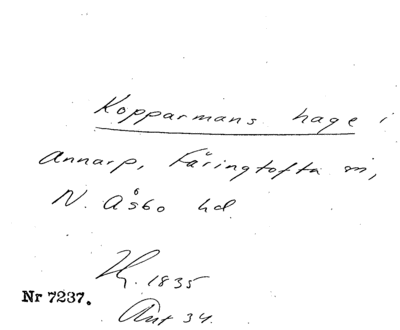 Kopparmans hage i
Annarp, Fåringtofta sn,
N. Åsbo hd
H. 1835
Nr 7237.
Ant 34.